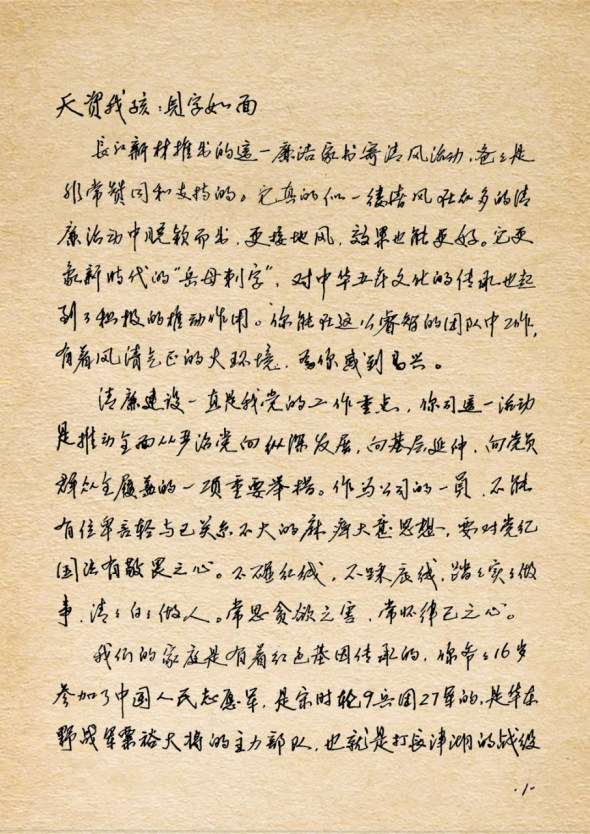 天资我孩:见字如面
長江新材推出的這一廉洁家书寄清风活动,爸々是
非常赞同和支持的。它真的似一缕清风在众多的清
廉活动中脱颖而出,更接地风,效果也能更好。它更
象新时代的“岳母刺字”,对中华五千年文化的传承也起
到了积极的推动作用。你能在这么睿智的团队中工作,
有着风清气正的大环境,为你感到高兴。
清廉建设一直是我党的工作重点,你司這一活动
是推动全面从严治党向纵深发展,向基层延伸,向党员
群众全履盖的一项重要举措。作为公司的一員,不能
有位卑言轻与己关系不大的麻痹大意思想,要对党纪
国法有敬畏之心。不碰红线,不踩底线,踏々实々做
事,清々白々做人。常思贪欲之害,常怀律己之心。
我们的家庭是有着红色基因传承的,你爷々16岁
参加了中国人民志愿军,是宋时轮9兵团27军的,是华东
野战军粟裕大将的主力部队,也就是打長津湖的战役
·1·